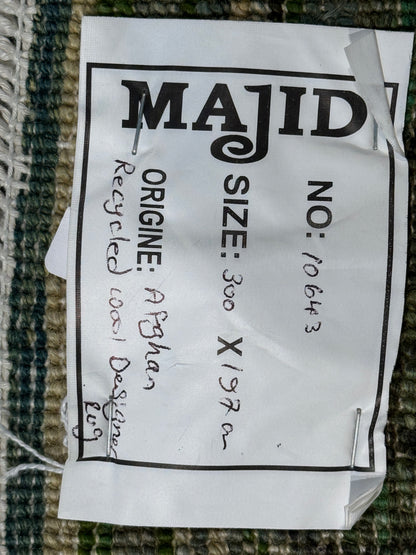 MAJID
NO: 10643
SIZE: 300 X 197 cm
ORIGINE: Afghan
Recycled wool Designer
rug